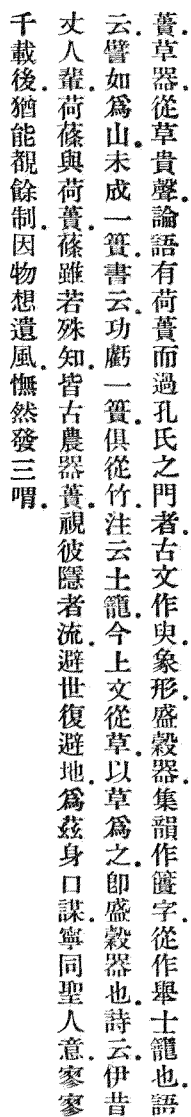 蕢草器從草貴聲論語有荷蕢而過孔氏之門者古文作臾象形盛穀器集韻作簣字從作舉土籠也語
云譬如爲山未成一簣書云功虧一簣俱從竹注云土籠今上文從草以草爲之卽盛穀器也詩云伊昔
丈人輩荷蓧與荷蕢蓧雖若殊知皆古農器蕢視彼隱者流避世復避地爲茲身口謀寧同聖人意寥寥
千載後猶能覩餘制因物想遺風憮然發三喟